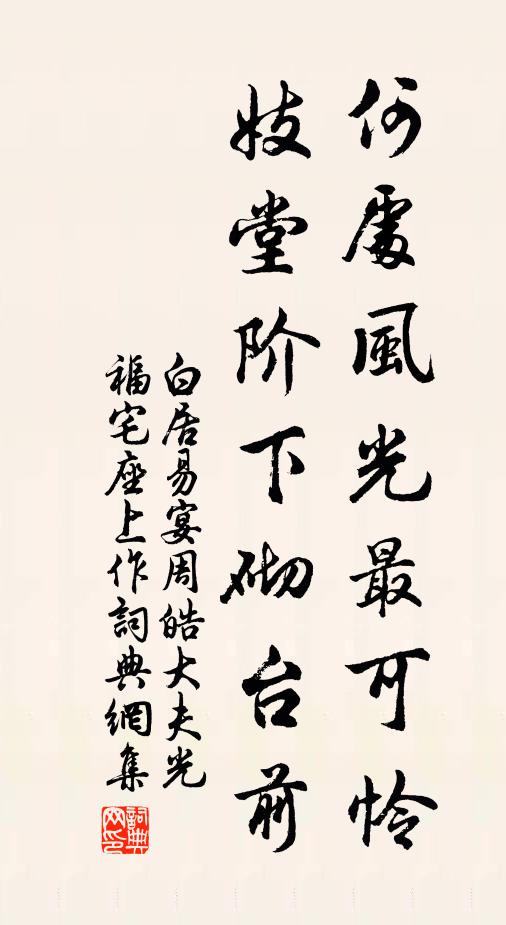 何處風光最可怜
妓堂阶下砌台前
白居易宴周皓大夫光
福宅座上作詞典網集
詞典
网印